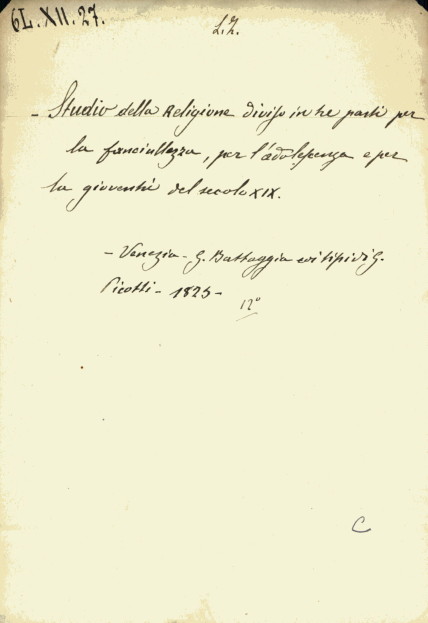 6L. XII. 27.
L. Z.
- Studio della Religione diviso in tre parti per
la fanciullezza, per l'adolescenza e per
la gioventù del secolo XIX.
- Venezia - G. Battaggia coi tipi di G.
Picotti - 1825 -
12°
C